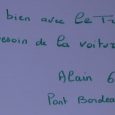 bien avec le T
esoin de la voitur
Alain 6
Pont Bordea